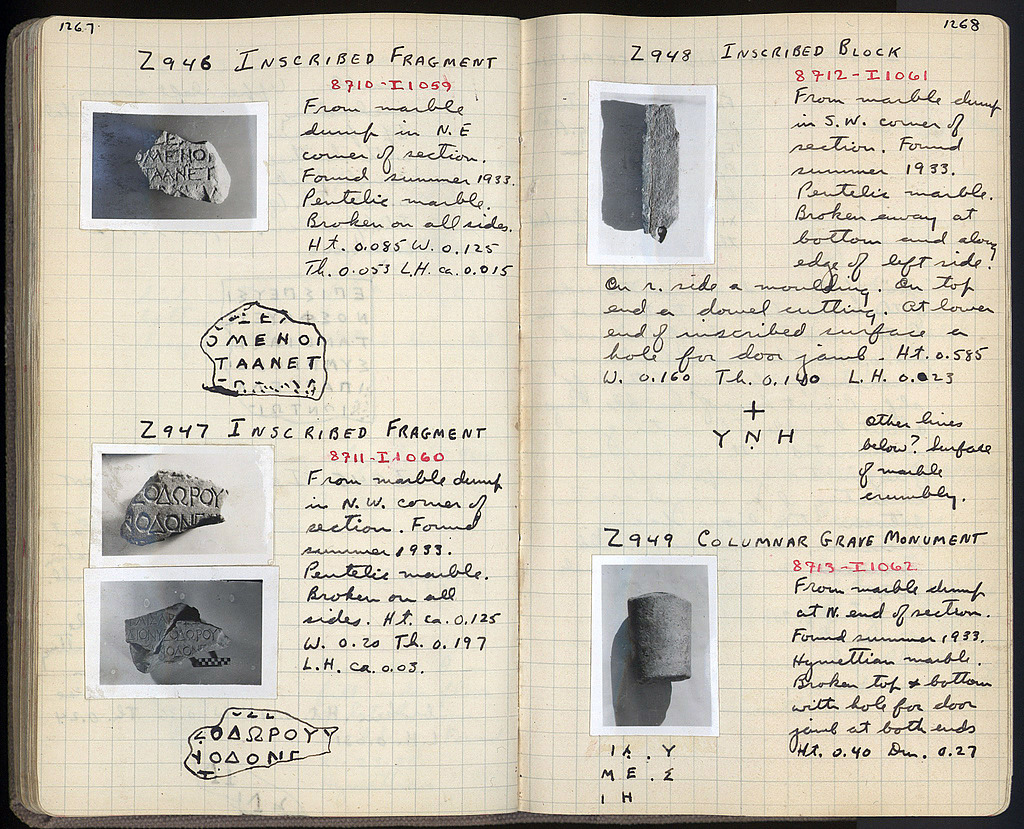 1267
Z946 INSCRIBED FRAGMENT
8710-I1059
From marble
dump in N.E
corner of section.
Found summer 1933.
Pentelic marble.
Broken on all sides.
Ht. 0.085 W. 0.125
Th. 0.053 L.H. ca. 0.015
ΟΜΕΝΟΙ
ΤΑΑΝΕΤ
Z947 INSCRIBED FRAGMENT
8711-I1060
From marble dump
in N.W. corner of
section. Found
summer 1933.
Pentelic marble.
Broken on all
sides. Ht. ca. 0.125
W. 0.20 Th. 0.197
L.H. ca. 0.03.
ΟΔΩΡΟΥ
ΟΔΟΝ
1268
Z948 INSCRIBED BLOCK
8712-I1061
From marble dump
in S.W. corner of
section. Found
summer 1933.
Pentelic marble.
Broken away at
bottom and along
edge of left side.
On r. side a moulding. On top
end a dowel cutting. At lower
end of inscribed surface a
hole for door jamb. Ht. 0.585
W. 0.160 Th. 0.140 L.H. 0.023
+
Υ Ν Η
Other lines
below? Surface
of marble
crumbly.
Z949 COLUMNAR GRAVE MONUMENT
8713-I1062
From marble dump
at N. end of section.
Found summer 1933.
Hymettian marble.
Broken top & bottom
with hole for door
jamb at both ends
Ht. 0.40 Dm. 0.27
Ι Α . Υ
Μ Ε . Σ
Ι Η